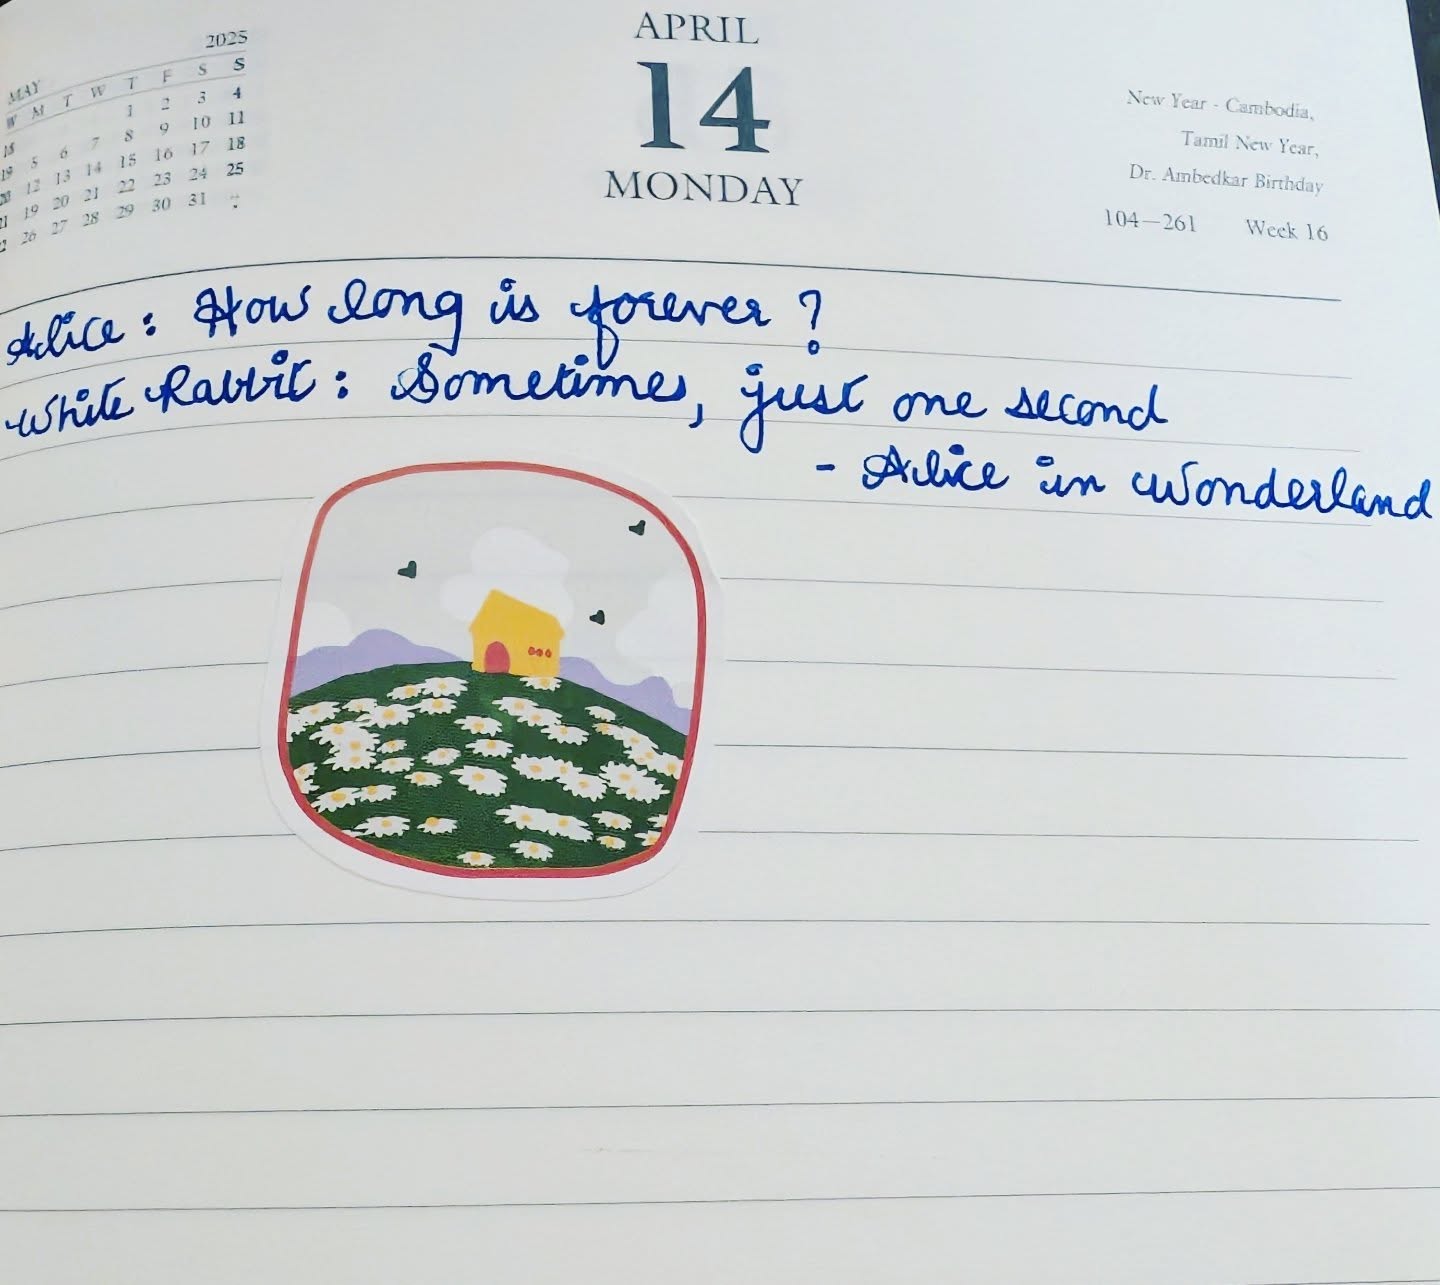 2025
MAY
W M T W T F S S
18 1 2 3 4
19 5 6 7 8 9 10 11
20 12 13 14 15 16 17 18
21 19 20 21 22 23 24 25
22 26 27 28 29 30 31
APRIL
14
MONDAY
New Year - Cambodia,
Tamil New Year,
Dr. Ambedkar Birthday
104—261 Week 16
Alice : How long is forever ?
White Rabbit : Sometimes, just one second
- Alice in Wonderland